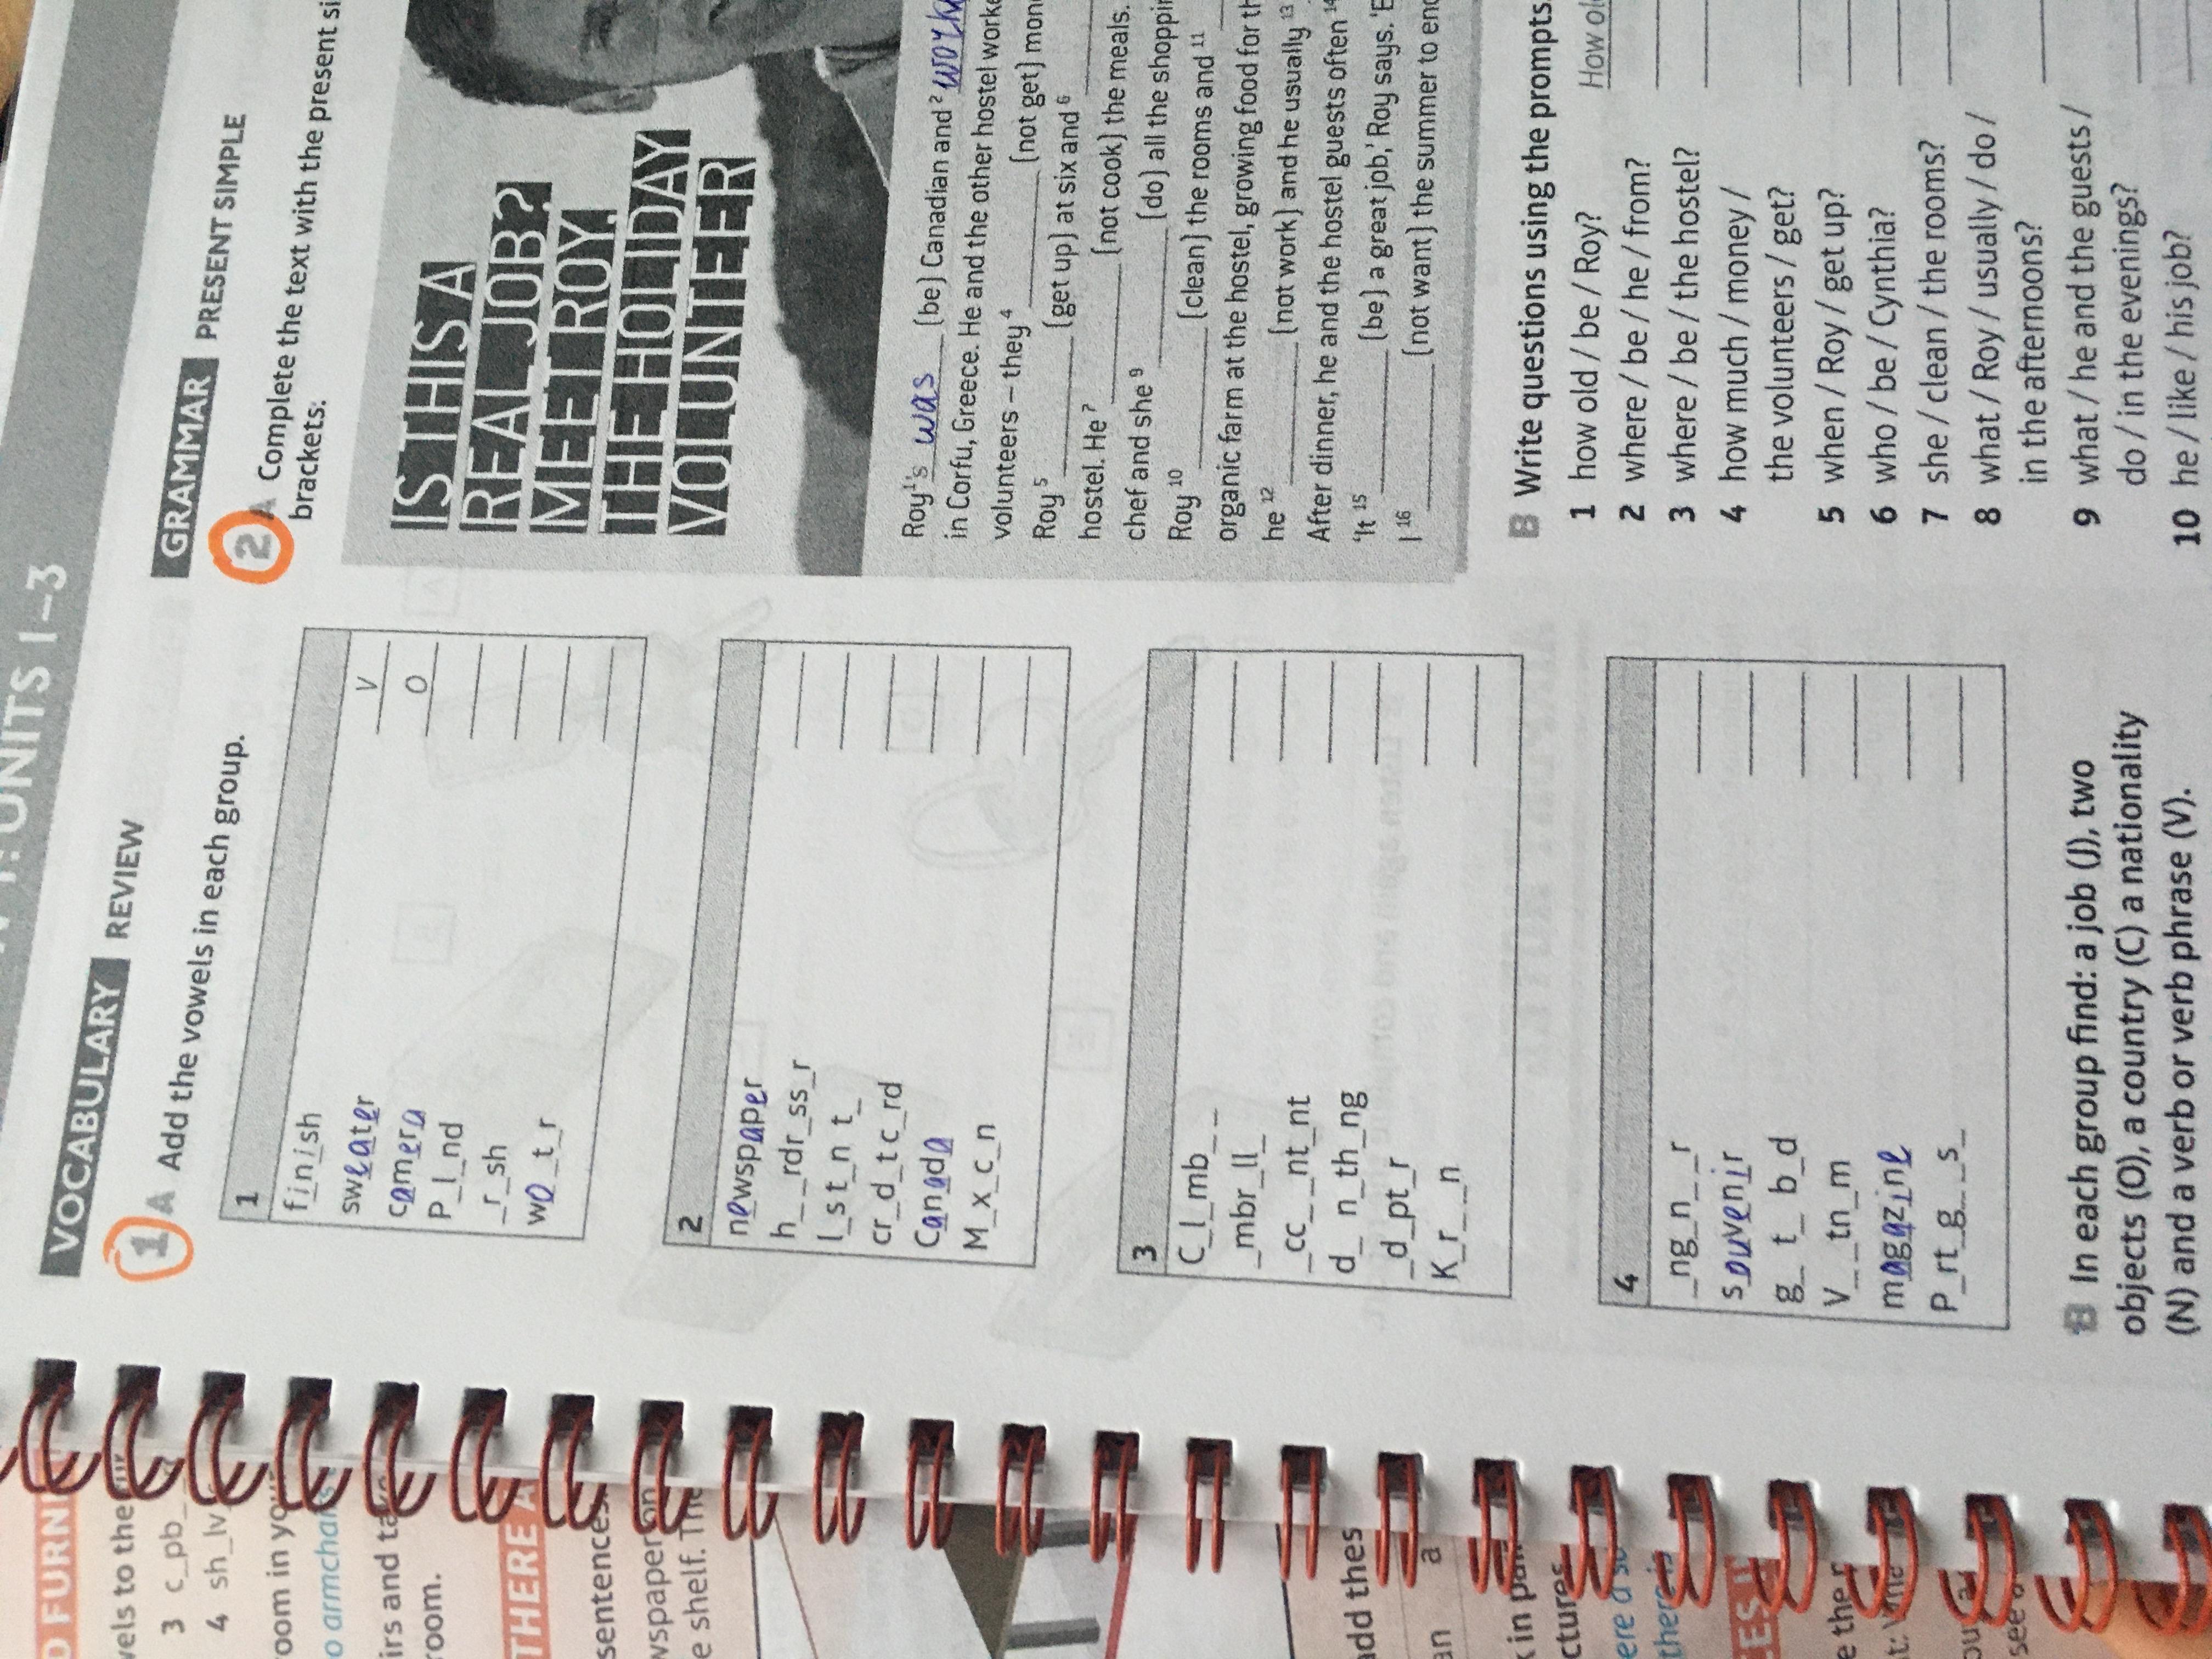 UNITS 1–3
VOCABULARY REVIEW
1 A Add the vowels in each group.
1
finish V
sweater O
camera
P_l_nd
_r_sh
wa_t_r
2
newspaper
h__rdr_ss_r
l_st_n t_
cr_d_t c_rd
Canada
M_x_c_n
3
C_l_mb__
_mbr_ll_
_cc__nt_nt
d_ n_th_ng
_d_pt_r
K_r__n
4
_ng_n__r
souvenir
g_t_ b_d
V__tn_m
magazine
P_rt_g__s_
B In each group find: a job (J), two
objects (O), a country (C) a nationality
(N) and a verb or verb phrase (V).
GRAMMAR PRESENT SIMPLE
2 A Complete the text with the present
brackets.
IS THIS A
REAL JOB?
MEET ROY.
THE HOLIDAY
VOLUNTEER
Roy ¹'s was (be) Canadian and ²
in Corfu, Greece. He and the other hostel
volunteers – they ⁴ (not get)
Roy ⁵ (get up) at six and ⁶
hostel. He ⁷ (not cook) the meals.
chef and she ⁹ (do) all the
Roy ¹⁰ (clean) the rooms and ¹¹
organic farm at the hostel, growing food for
he ¹² (not work) and he usually ¹³
After dinner, he and the hostel guests often ¹⁴
'It ¹⁵ (be) a great job,' Roy says.
I ¹⁶ (not want) the summer to
B Write questions using the prompts.
1 how old / be / Roy? How
2 where / be / he / from?
3 where / be / the hostel?
4 how much / money /
the volunteers / get?
5 when / Roy / get up?
6 who / be / Cynthia?
7 she / clean / the rooms?
8 what / Roy / usually / do /
in the afternoons?
9 what / he and the guests /
do / in the evenings?
10 he / like / his job?
3 c_pb_
4 sh_lv
room.
THERE